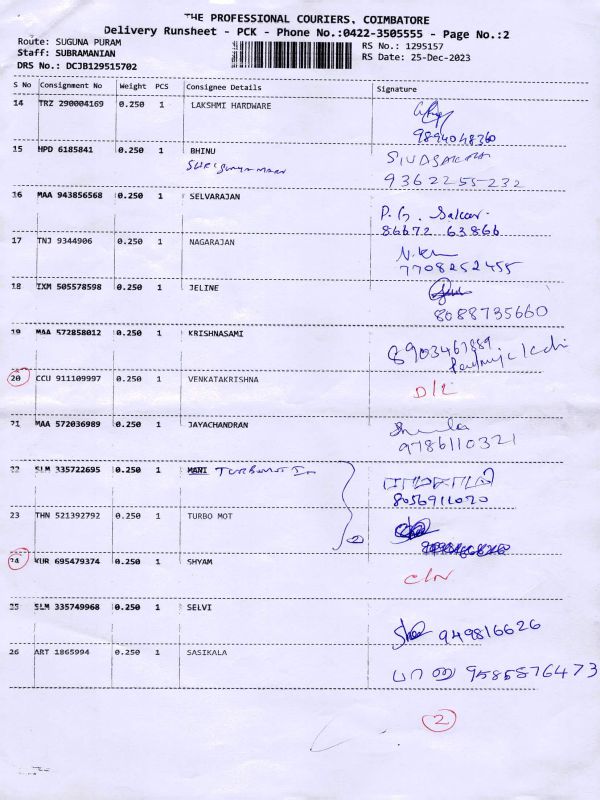 THE PROFESSIONAL COURIERS, COIMBATORE
Delivery Runsheet - PCK - Phone No.:0422-3505555 - Page No.:2
Route: SUGUNA PURAM
RS No.: 1295157
Staff: SUBRAMANIAN
RS Date: 25-Dec-2023
DRS No.: DCJB129515702
S No Consignment No Weight PCS Consignee Details Signature
14 TRZ 290004169 0.250 1 LAKSHMI HARDWARE
9894048360
15 HPD 6185841 0.250 1 BHINU
9362255-232
16 MAA 943856568 0.250 1 SELVARAJAN
86672 63866
17 TNJ 9344906 0.250 1 NAGARAJAN
7708252455
18 IXM 505578598 0.250 1 JELINE
8088735660
19 MAA 572858012 0.250 1 KRISHNASAMI
20 CCU 911109997 0.250 1 VENKATAKRISHNA
D/L
21 MAA 572036989 0.250 1 JAYACHANDRAN
9786110321
22 SLM 335722695 0.250 1 MANI TURBOMOT In
8056911020
23 THN 521392792 0.250 1 TURBO MOT
2
24 KUR 695479374 0.250 1 SHYAM
25 SLM 335749968 0.250 1 SELVI
949816626
26 ART 1865994 0.250 1 SASIKALA
பானு 9585576473
2